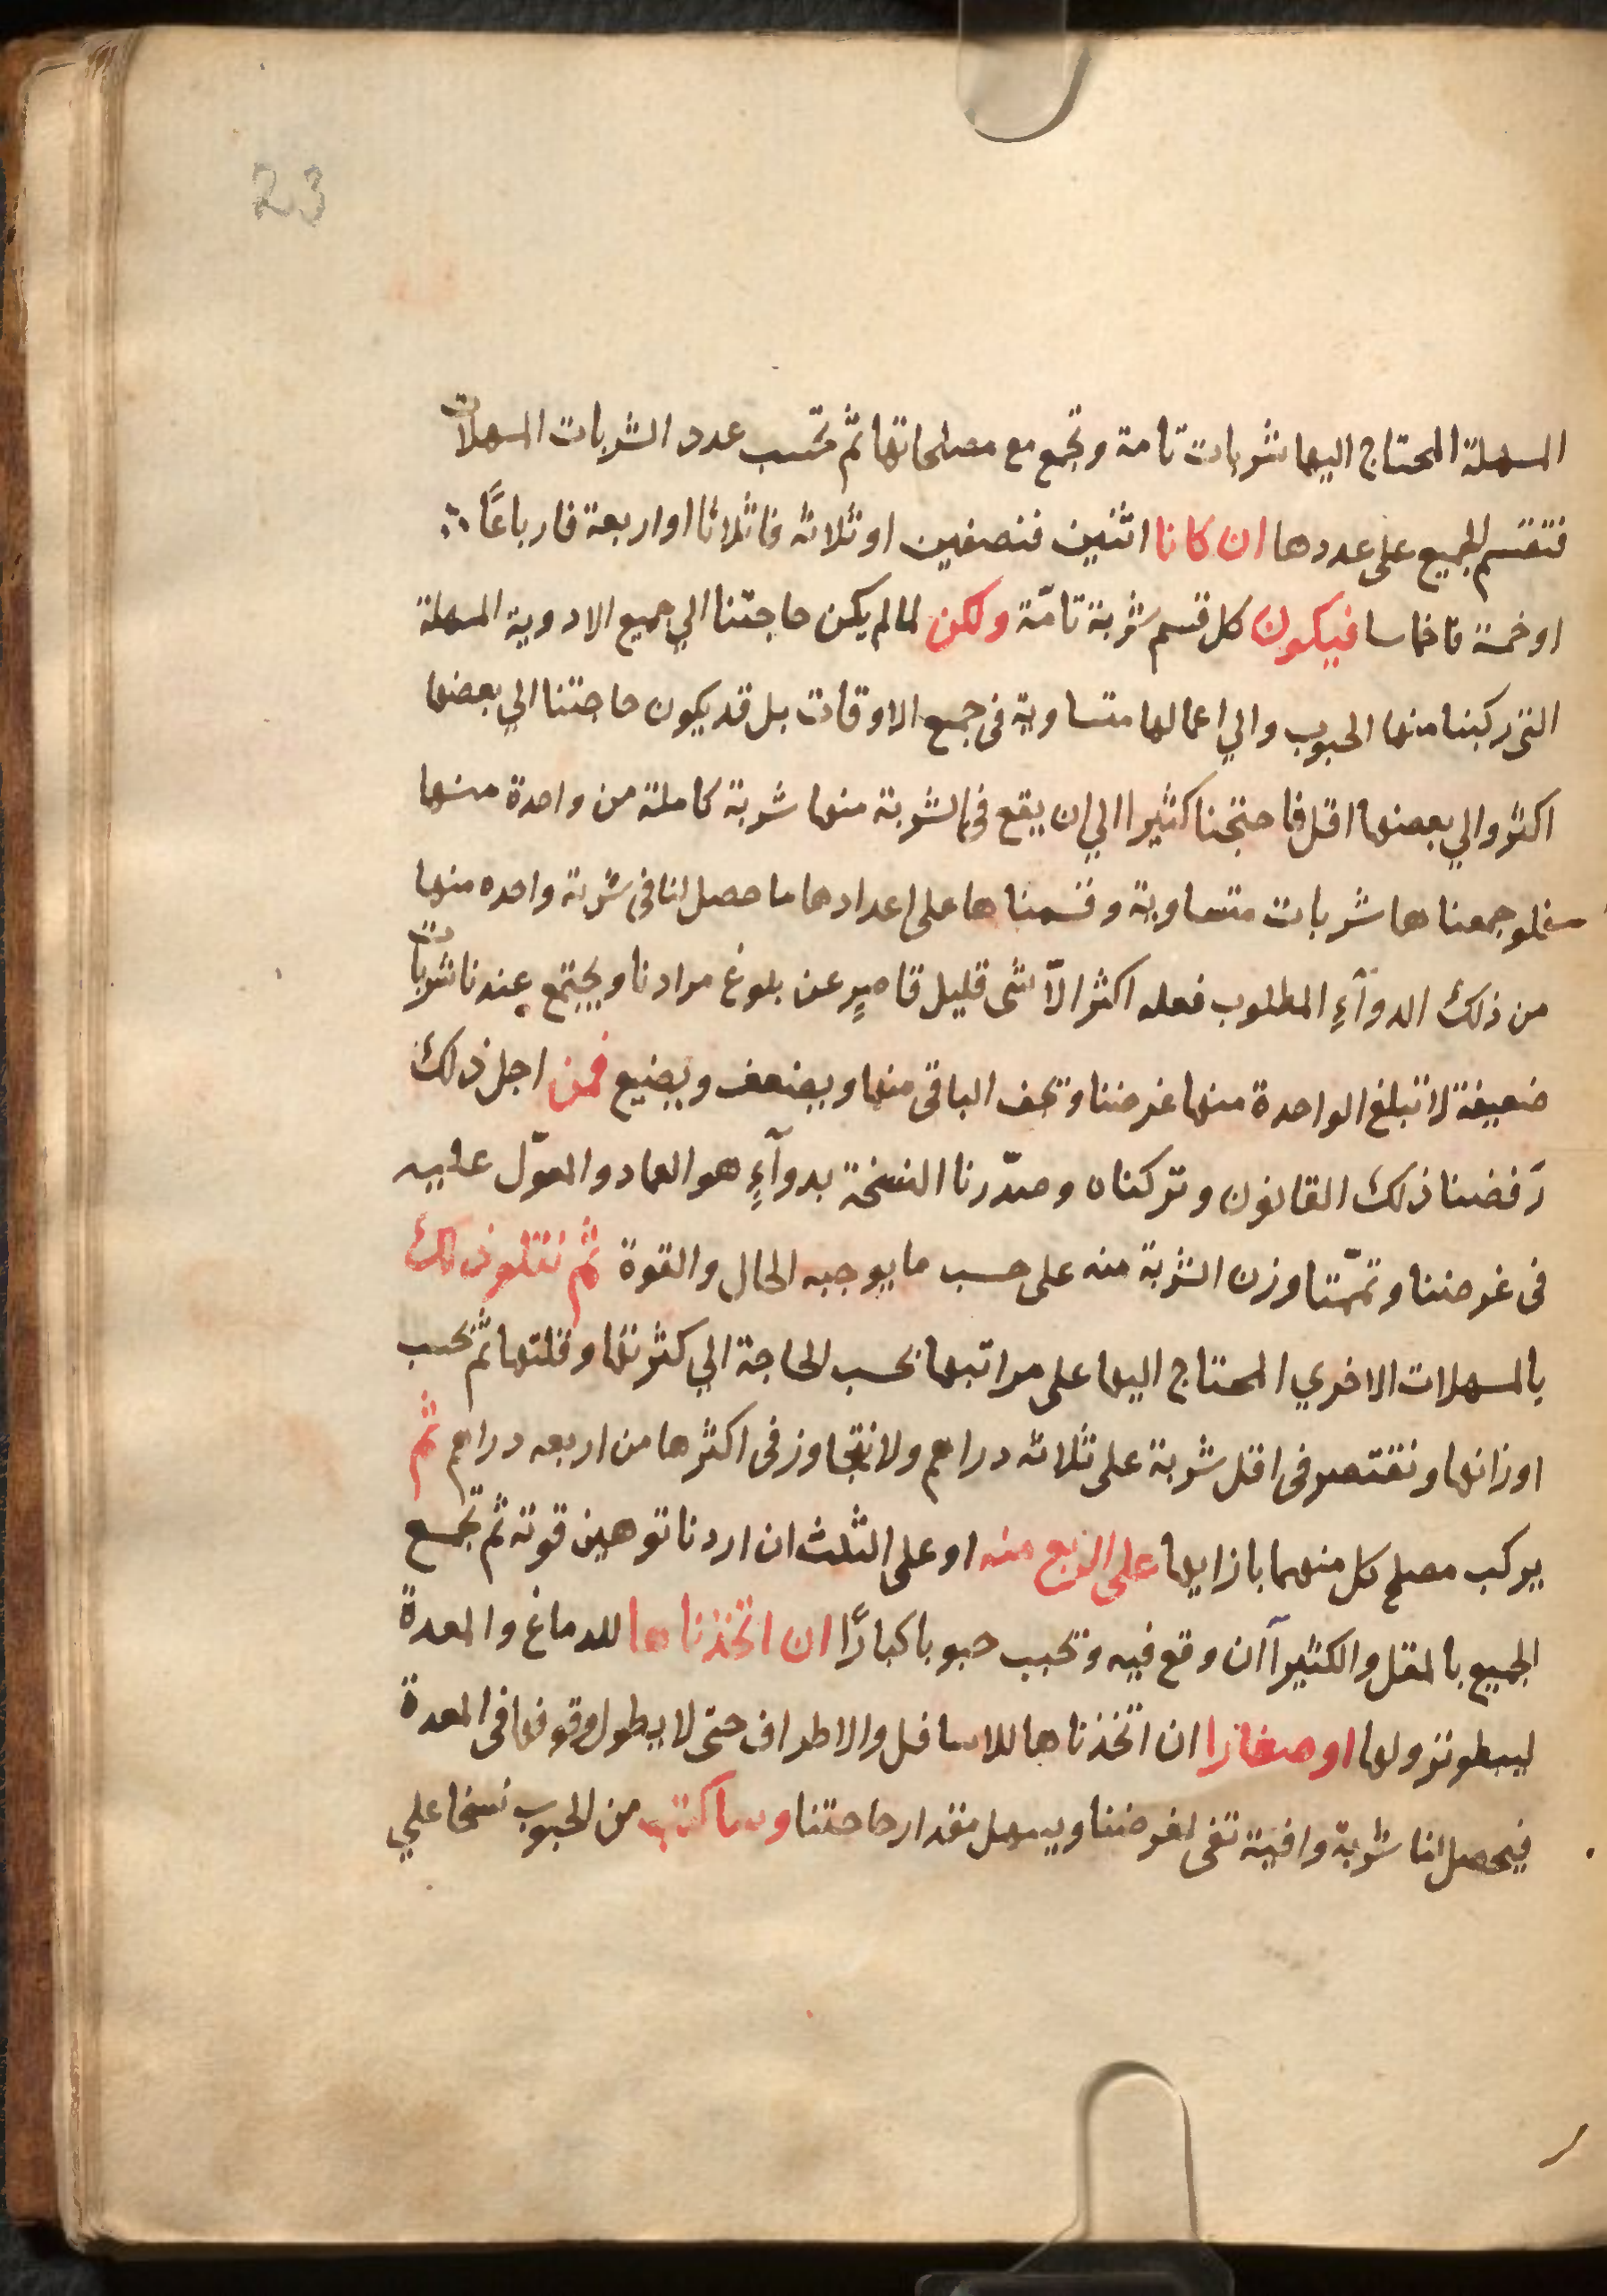 23
المسهلة المحتاج اليها شربات تامة وتجمع مع مصلحاتها ثم تحسب عدد الشربات المسهلات
فتقسم الجميع على عددها ان كانا اثنين فنصفين او ثلاثه فاثلاثا او اربعة فارباعًا ∴
او خمسة فاخماسا فيكون كل قسم شربة تامّة ولكن لما لم يكن حاجتنا الي جميع الادوية المسهلة
التى ركبنا منها الحبوب والي اعمالها متساوية فى جميع الاوقات بل قد يكون حاجتنا الي بعضها
اكثر والي بعضها اقل فاحتجنا كثيرا الي ان يقع فى الشربة منها شربة كاملة من واحدة منها
فلو جمعناها شربات متساوية وقسمناها على اعدادها ما حصل لنا فى شربة واحده منها
من ذلك الدوآءِ المطلوب فعله اكثر الّا شى قليل قاصرٍ عن بلوغ مرادنا ويجتمع عندنا شربات
ضعيفة لا تبلغ الواحدة منها غرضنا وتجف الباقى منها ويضعف ويضيع فمن اجل ذلك
رَفضنا ذلك القانون وتركناه وصدّرنا النسخة بدوآءِ هو العماد والمعوّل عليه
فى غرضنا وتمّمنا وزن الشربة منه على حسب ما يوجبه الحال والقوة ثم نتلو ذلك
بالمسهلات الاخري المحتاج اليها على مراتبها بحسب الحاجة الي كثرتها وقلتها ثم نحسب
اوزانها ونقتصر فى اقل شربة على ثلاثه دراهم ولا نتجاوز فى اكثرها من اربعه دراهم ثم
يركب مصلح كل منهما بازايها على الربع منه او على الثلث ان اردنا توهين قوته ثم تجمع
الجميع بالمقل والكثيرآ ان وقع فيه وتحبب حبوبا كبارًا ان اتخذناها للدماغ والمعدة
ليبطو نزولها او صغارا ان اتخذناها للاسافل والاطراف حتى لا يطول وقوفها فى المعدة
فيحصل لنا شربة وافية تفى لغرضنا ويسهل مقدار حاجتنا وساكتب من الحبوب نسخا علي